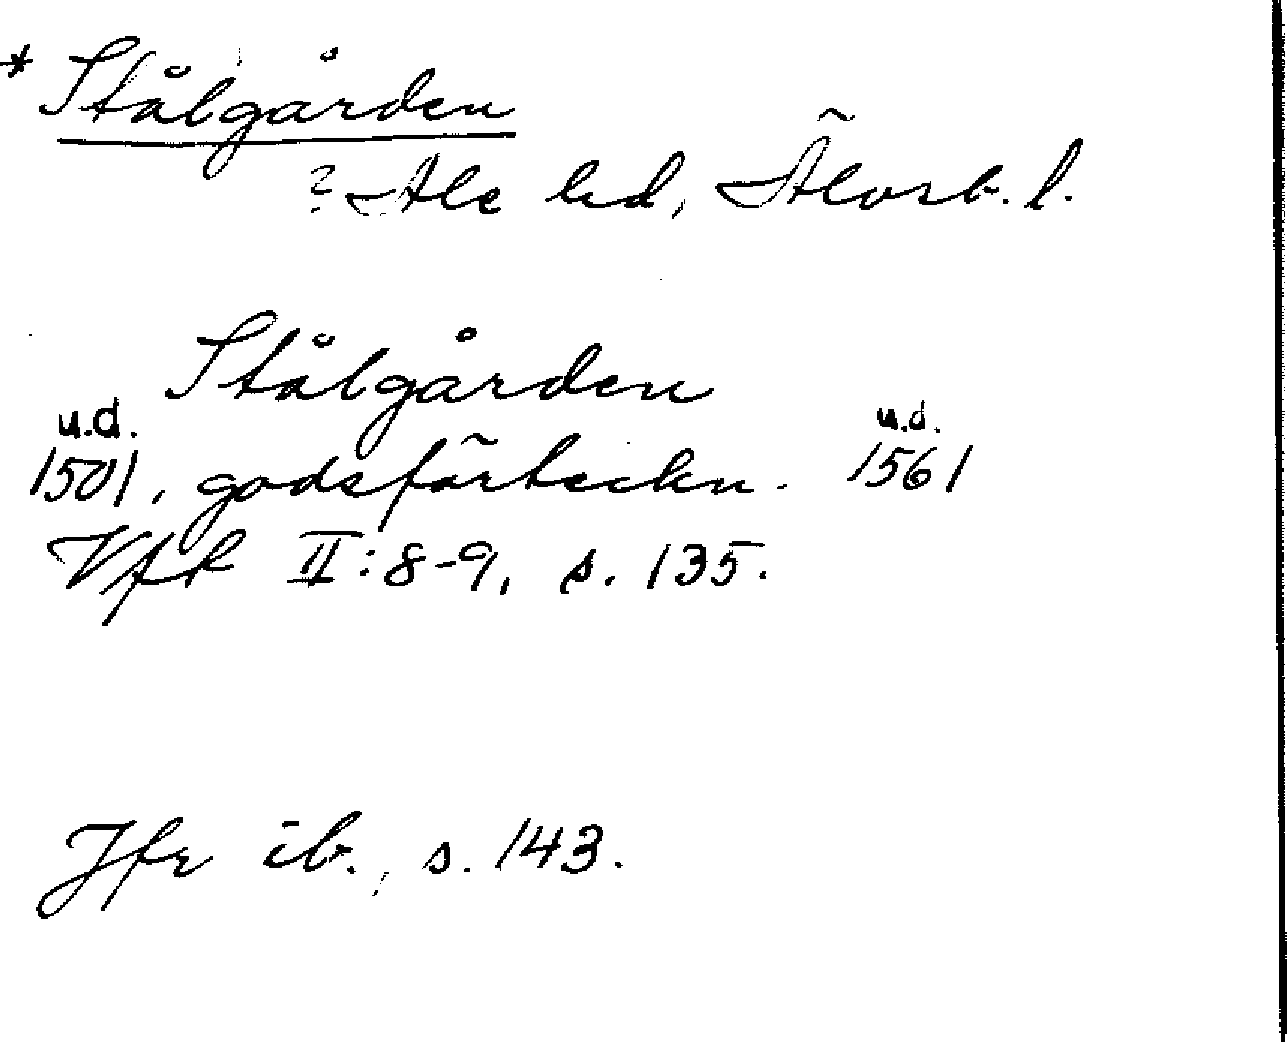 * Stålgården
? Ale hd, Älvsb. l.
Stålgården
u.d. u.d.
1501, godsförteckn. 1561
VfR II:8-9, s. 135.
Jfr ib., s. 143.